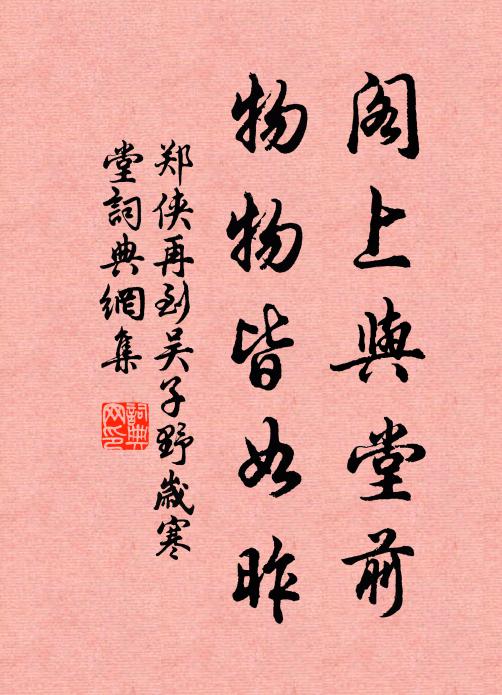 阁上與堂前
物物皆如昨
郑侠再到吴子野歲寒
堂詞典網集
詞典网印